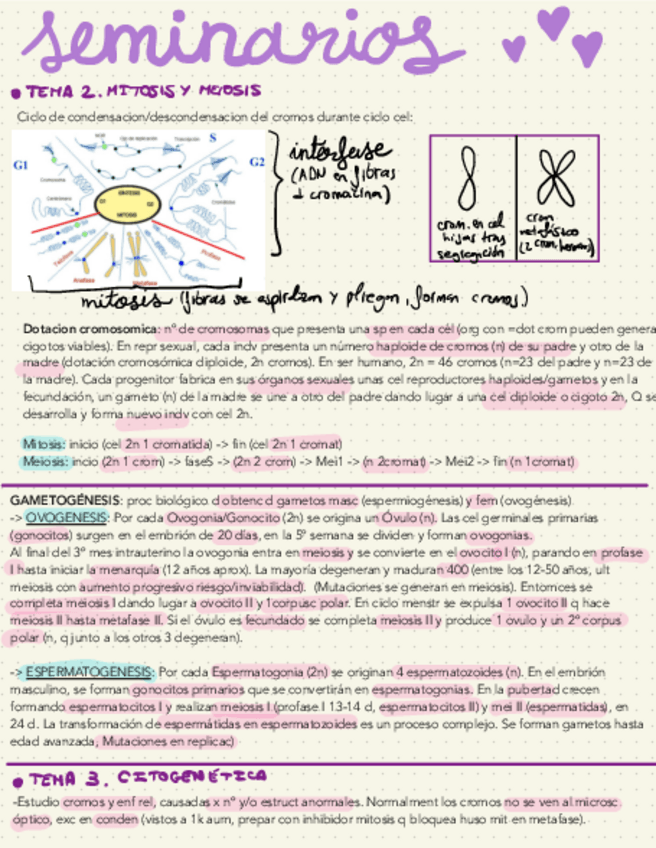 seminarios
• TEMA 2. MITOSIS Y MEIOSIS
Ciclo de condensacion/descondensacion del cromos durante ciclo cel:
S
G1
G2
SINTESIS
G1 G2
MITOSIS
Profase
Metafase
Anafase
Telofase
interfase
(ADN en fibras
cromatina)
crom. en cel
hijas tras
segregación
crom
metafásico
(2 crom. herman)
mitosis (fibras se espiralizan y pliegan, forman cromos)
Dotacion cromosomica: nº de cromosomas que presenta una sp en cada cél (org con =dot crom pueden genera
cigotos viables). En repr sexual, cada indv presenta un número haploide de cromos (n) de su padre y otro de la
madre (dotación cromosómica diploide, 2n cromos). En ser humano, 2n = 46 cromos (n=23 del padre y n=23 de
la madre). Cada progenitor fabrica en sus órganos sexuales unas cel reproductores haploides/gametos y en la
fecundación, un gameto (n) de la madre se une a otro del padre dando lugar a una cel diploide o cigoto 2n, Q se
desarrolla y forma nuevo indv con cel 2n.
Mitosis: inicio (cel 2n 1 cromatida) -> fin (cel 2n 1 cromat)
Meiosis: incio (2n 1 crom) -> faseS -> (2n 2 crom) -> Mei1 -> (n 2cromat) -> Mei2 -> fin (n 1cromat)
GAMETOGÉNESIS: proc biológico d obtenc d gametos masc (espermiogénesis) y fem (ovogénesis)
-> OVOGENESIS: Por cada Ovogonia/Gonocito (2n) se origina un Óvulo (n). Las cel germinales primarias
(gonocitos) surgen en el embrión de 20 días, en la 5º semana se dividen y forman ovogonias.
Al final del 3º mes intrauterino la ovogonia entra en meiosis y se convierte en el ovocito I (n), parando en profase
I hasta iniciar la menarquía (12 años aprox). La mayoría degeneran y maduran 400 (entre los 12-50 años, ult
meiosis con aumento progresivo riesgo/inviabilidad). (Mutaciones se generan en meiosis). Entonces se
completa meiosis I dando lugar a ovocito II y 1corpusc polar. En ciclo menstr se expulsa 1 ovocito II q hace
meiosis II hasta metafase II. Si el óvulo es fecundado se completa meiosis II y produce 1 ovulo y un 2º corpus
polar (n, q junto a los otros 3 degeneran).
-> ESPERMATOGENESIS: Por cada Espermatogonia (2n) se originan 4 espermatozoides (n). En el embrión
masculino, se forman gonocitos primarios que se convertirán en espermatogonias. En la pubertad crecen
formando espermatocitos I y realizan meiosis I (profase I 13-14 d, espermatocitos II) y mei II (espermatidas), en
24 d. La transformación de espermátidas en espermatozoides es un proceso complejo. Se forman gametos hasta
edad avanzada, Mutaciones en replicac)
• TEMA 3. CITOGENÉTICA
-Estudio cromos y enf rel, causadas x nº y/o estruct anormales. Normalment los cromos no se ven al microsc
óptico, exc en conden (vistos a 1k aum, prepar con inhibidor mitosis q bloquea huso mit en metafase).